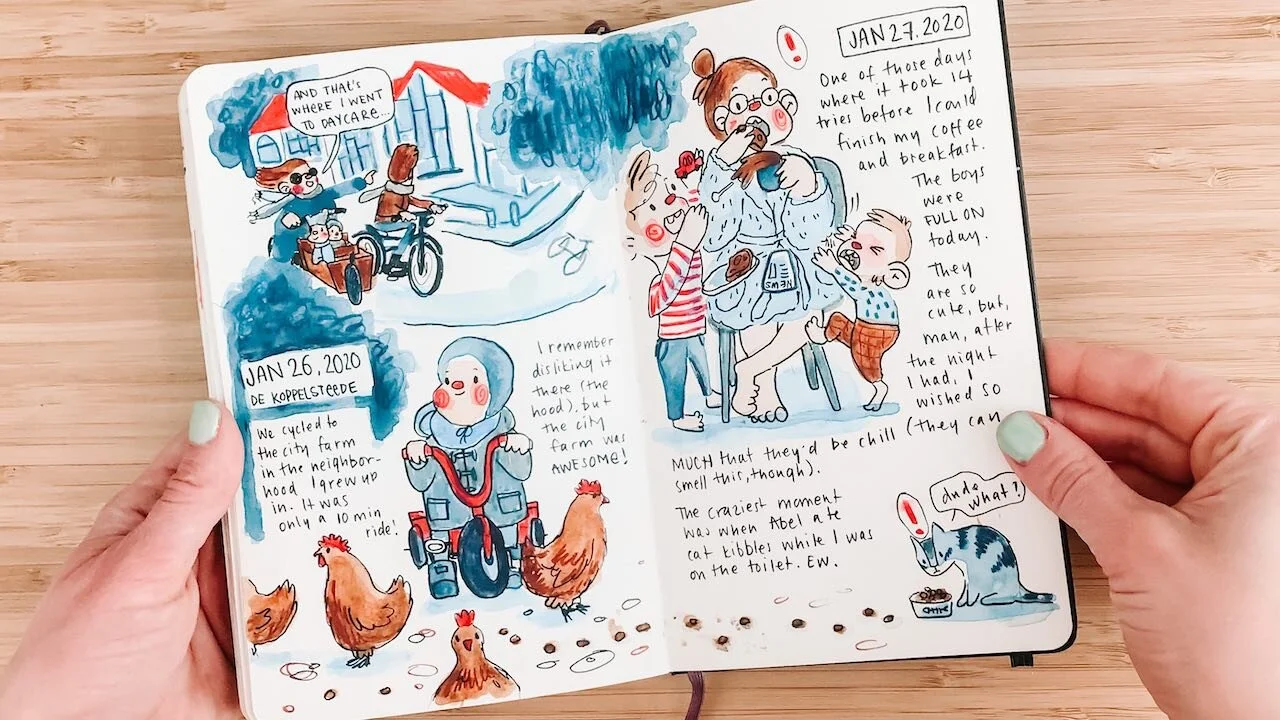 AND THAT'S
WHERE I WENT
TO DAYCARE...
JAN 26, 2020
DE KOPPELSTEEDE
We cycled to
the city farm
in the neighbor-
hood I grew up
in. It was
only a 10 min
ride!
I remember
disliking it
there (the
hood), but
the city
farm was
AWESOME!
!
JAN 27, 2020
One of those days
where it took 14
tries before I could
finish my coffee
and breakfast.
The boys
were
FULL ON
today.
They
are so
cute, but,
man, after
the night
I had, I
wished so
MUCH that they'd be chill (they can
smell this, though).
NEWS
The craziest moment
was when Abel ate
cat kibbles while I was
on the toilet. EW.
!
dude,
what?